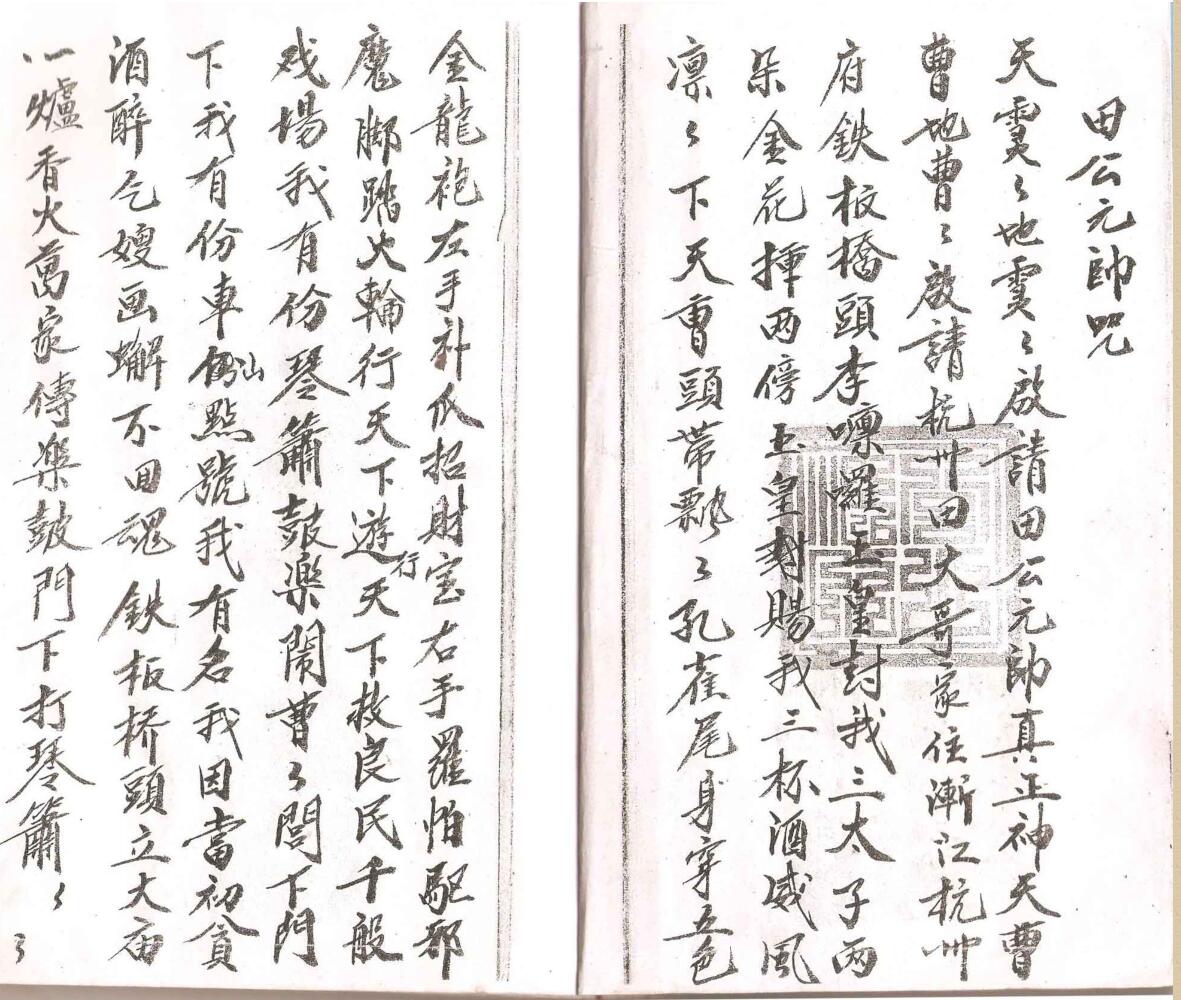 田公元帥咒
天灵〻地灵〻啟請田公元帥真正神天曹
曹地曹〻啟請杭州田大哥家住漸江杭州
府鉄板橋頭李㘓囉玉皇封我三太子兩
朵金花揷兩傍玉皇勅賜我三杯酒威風
凛〻下天曹頭帶飄〻孔雀尾身穿五色
金龍袍左手補瓜招財宝右手羅怕駈邪
魔脚踏火輪行天下遊行天下救良民千般
戏場我有份琴簫鼓楽鬧曹〻閭下門
下我有份車 點號我有名我因當初貧
酒醉乞嫂画蠏不回魂鉄板桥頭立大庙
一爐香火萬家傳樂鼓門下打琴簫〻